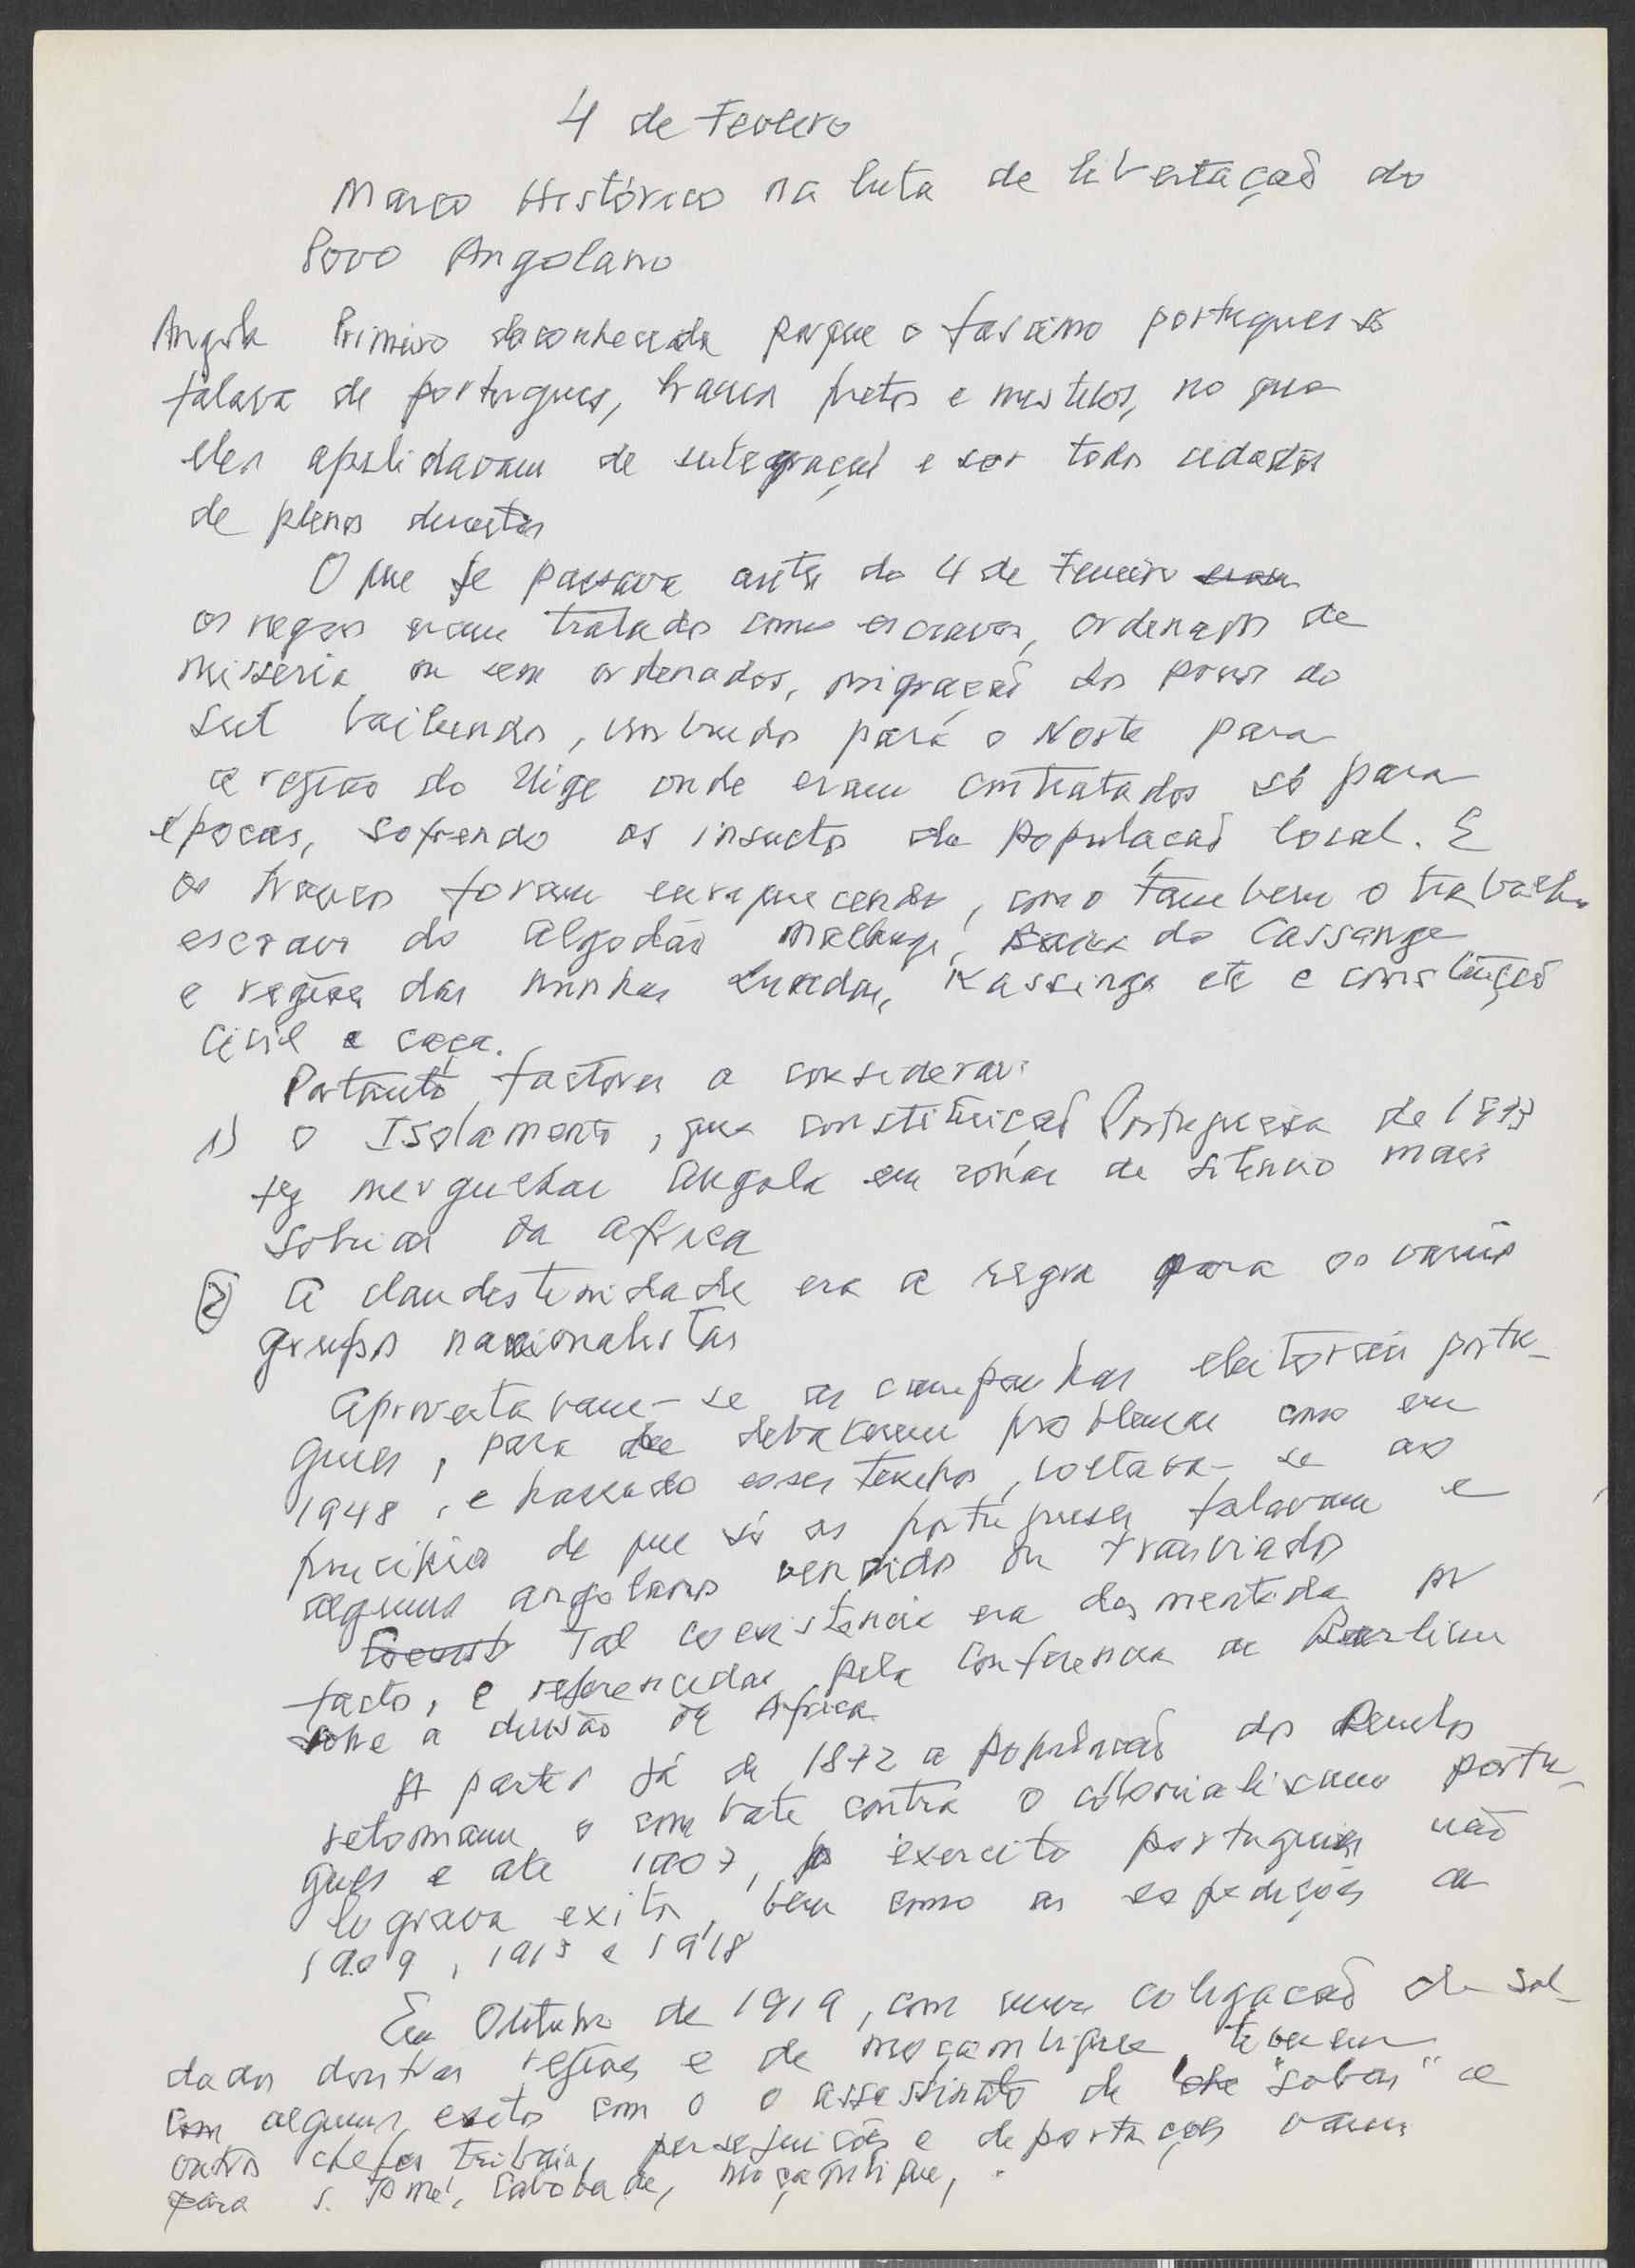 4 de Fevereiro
Marco Histórico na luta de libertação do
Povo Angolano
Angola Primeiro desconhecida porque o fascismo portugues só
falava de portugues, brancos pretos e mestiços, no que
eles apelidavam de integração e ser todos cidadãos
de plenos direitos
O que se passava antes do 4 de Fevereiro
os negros eram tratados como escravos, ordenados de
misseria ou sem ordenados, migração dos povos do
sul bailundos, umbundos para o Norte para
a região do Uige onde eram contratados só para
épocas, sofrendo os insultos da população local. E
os brancos foram enraquecendo, como tambem o trabalho
escravo do algodão Malange, Baixa do Cassange
e regiões das minhas Lundas, Kassinga etc e construção
Civil e caça.
Portanto factores a considerar:
1) O Isolamento, que constituição Portuguesa de 1933
fez mergulhar Angola em zonas de silencio mais
sobrias da Africa
2) A clandestinidade era a regra para os varios
grupos nacionalistas
Aproveitavam-se as campanhas eleitorais portu-
gues, para debaterem problemas como em
1948, e passado esses tempos, voltava-se ao
principio de que só os portugueses falavam e
alguns angolanos vendidos ou transviados
Tal coexistencia era desmentida por
factos, e referenciadas pela Conferencia de Berlim
sobre a divisão de Africa
A partir já de 1872 a população dos Dembos
retomam o combate contra o colonialismo portu-
gues e ate 1907, o exercito portugues não
lograva exitos, bem como as expedições de
1909, 1913 e 1918
Em Outubro de 1919, com uma coligação de sol-
dados doutras regiões e de moçambique, tiveram
com alguns exitos com o o assassinato de "sobas" e
outros chefes tribais, perseguições e deportações
para S. Tomé, Caboverde, moçambique,